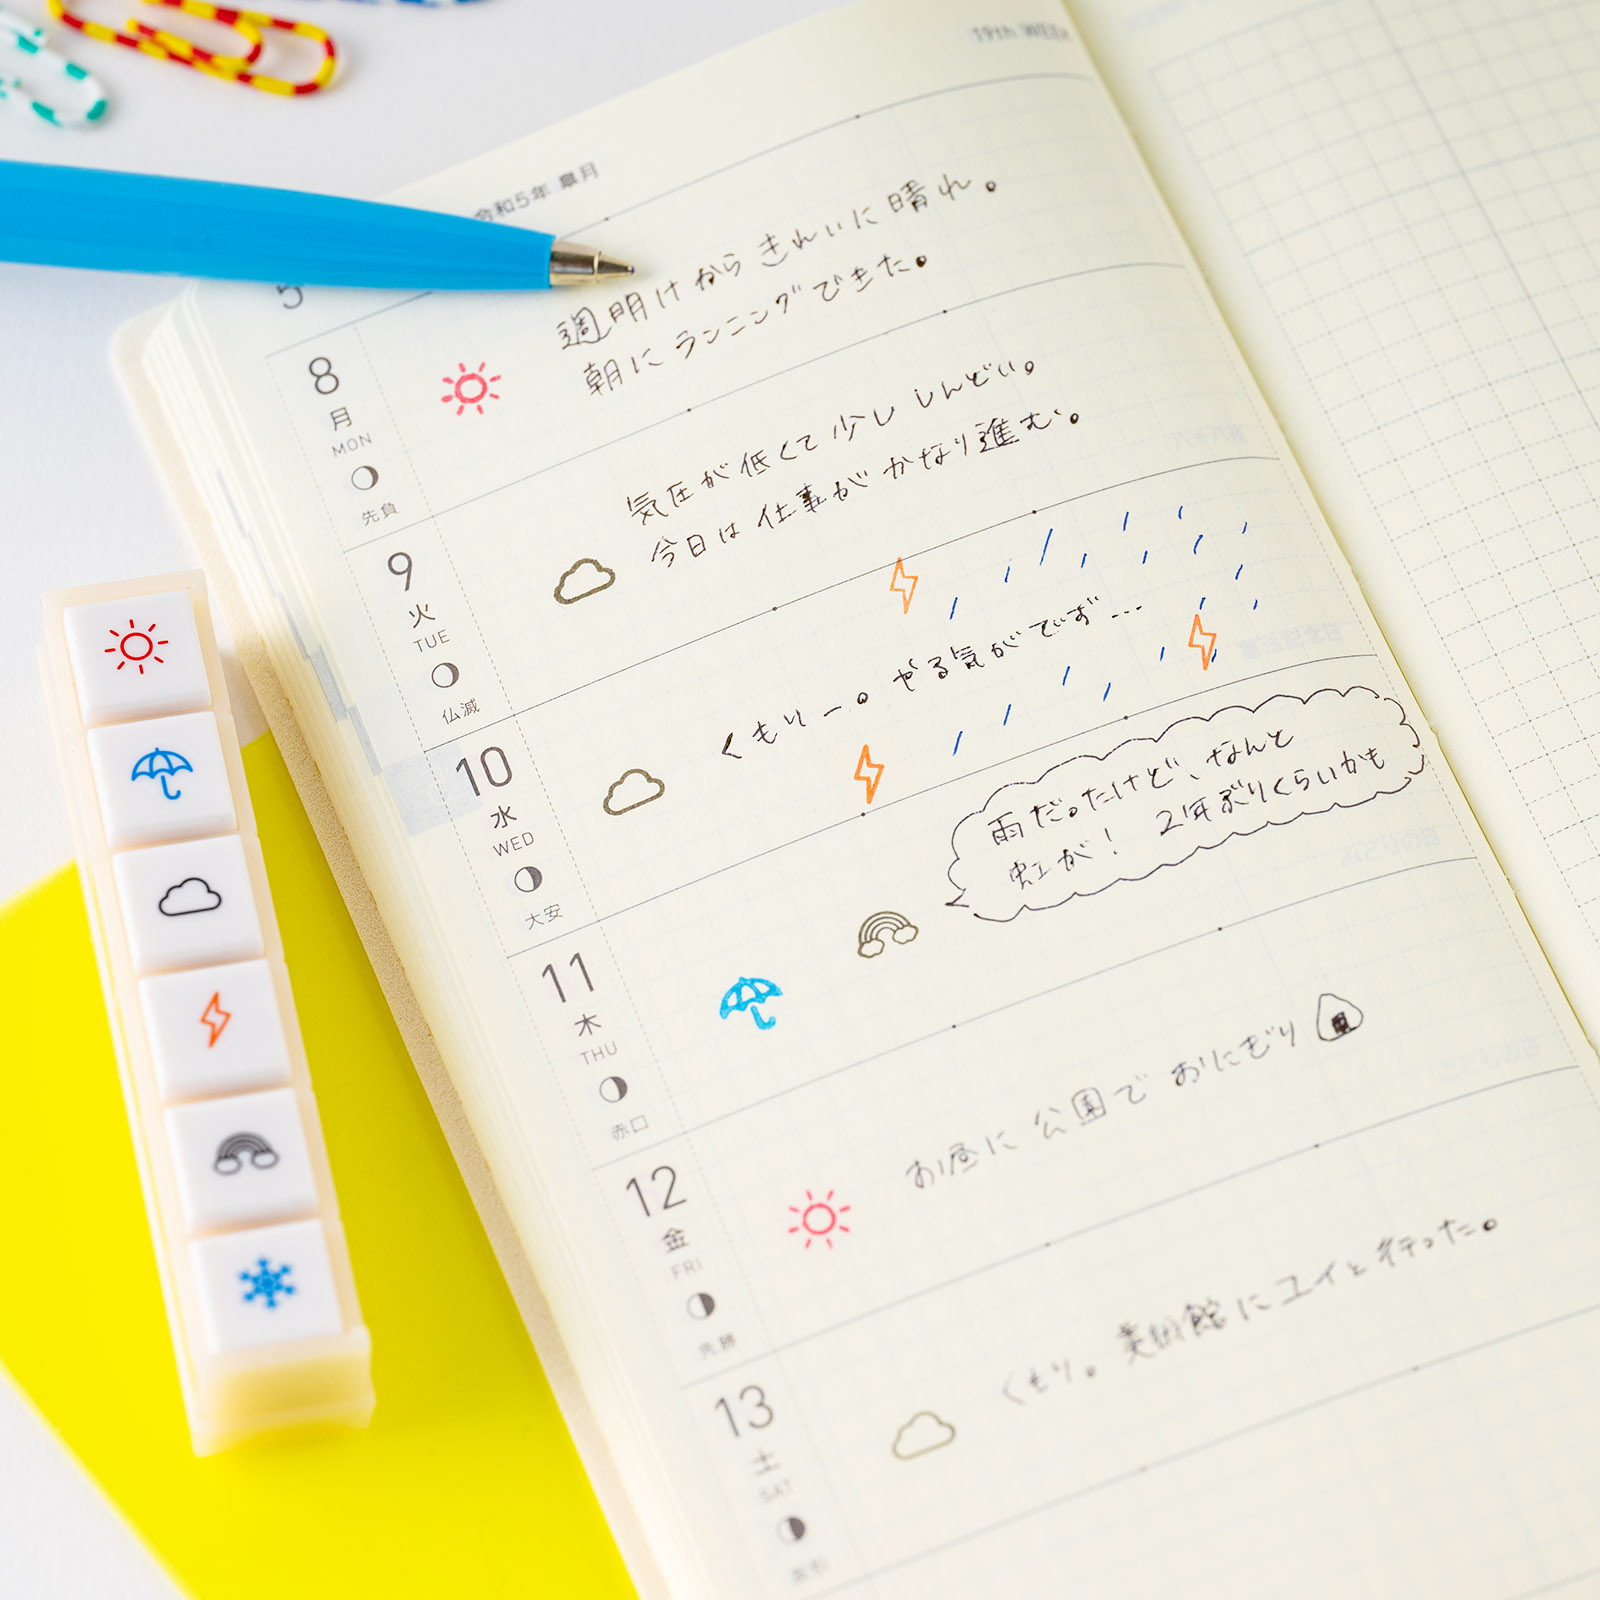 19th WEEK
令和5年 皐月
5
8
月
MON
先負
週明けからきれいに晴れ。
朝にランニングできた。
9
火
TUE
仏滅
気圧が低くて少ししんどい。
今日は仕事がかなり進む。
10
水
WED
大安
くもりー。やる気がでず…
11
木
THU
赤口
雨だったけど、なんと
虹が！ 2年ぶりくらいかも
12
金
FRI
先勝
お昼に公園でおにぎり
13
土
SAT
友引
くもり。美術館にユイと行った。